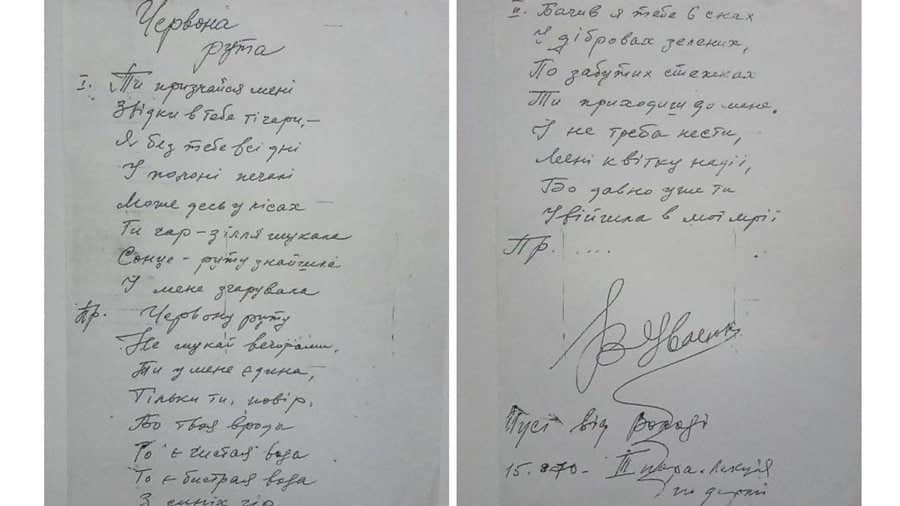 Червона
рута
I. Ти признайся мені
Звідки в тебе ті чари,–
Я без тебе всі дні
У полоні печалі
Може десь у лісах
Ти чар-зілля шукала
Сонце-руту знайшла
І мене зчарувала
Пр. Червону руту
Не шукай вечорами,
Ти у мене єдина,
Тільки ти, повір.
Бо твоя врода
То є чистая вода
То є бистрая вода
З синіх гір
II. Бачив я тебе в снах
У дібровах зелених,
По забутих стежках
Ти приходиш до мене.
І не треба нести,
Мені квітку надії,
Бо давно уже ти
Увійшла в мої мрії
Пр. ....
Русі від Володі
15.